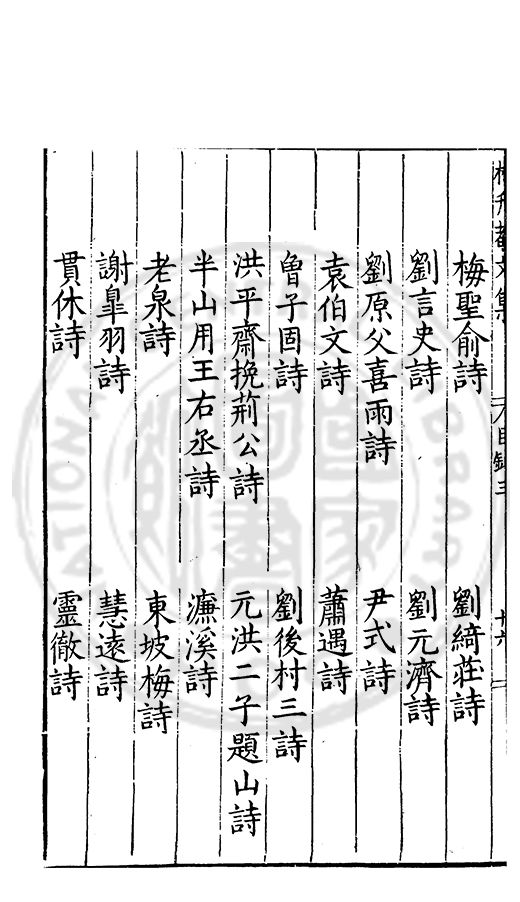 梅聖俞詩　劉綺莊詩
劉言史詩　劉元濟詩
劉原父喜雨詩　尹式詩
袁伯文詩　蕭遇詩
曾子固詩　劉後村三詩
洪平齋挽荊公詩　元洪二子題山詩
半山用王右丞詩　濂溪詩
老泉詩　東坡梅詩
謝皐羽詩　慧遠詩
貫休詩　靈徹詩